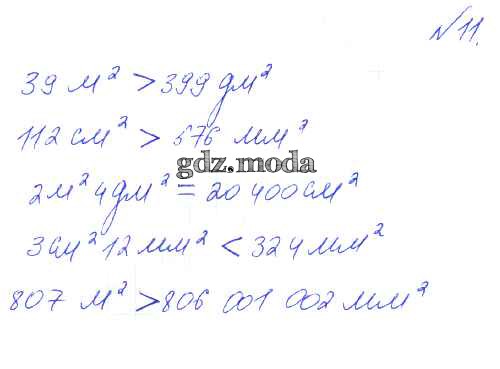 №11.
39 м² > 399 дм²
112 см² > 576 мм²
gdz.moda
2м² 4дм² = 20 400см²
3см² 12мм² < 324мм²
807 м² > 806 001 002 мм²